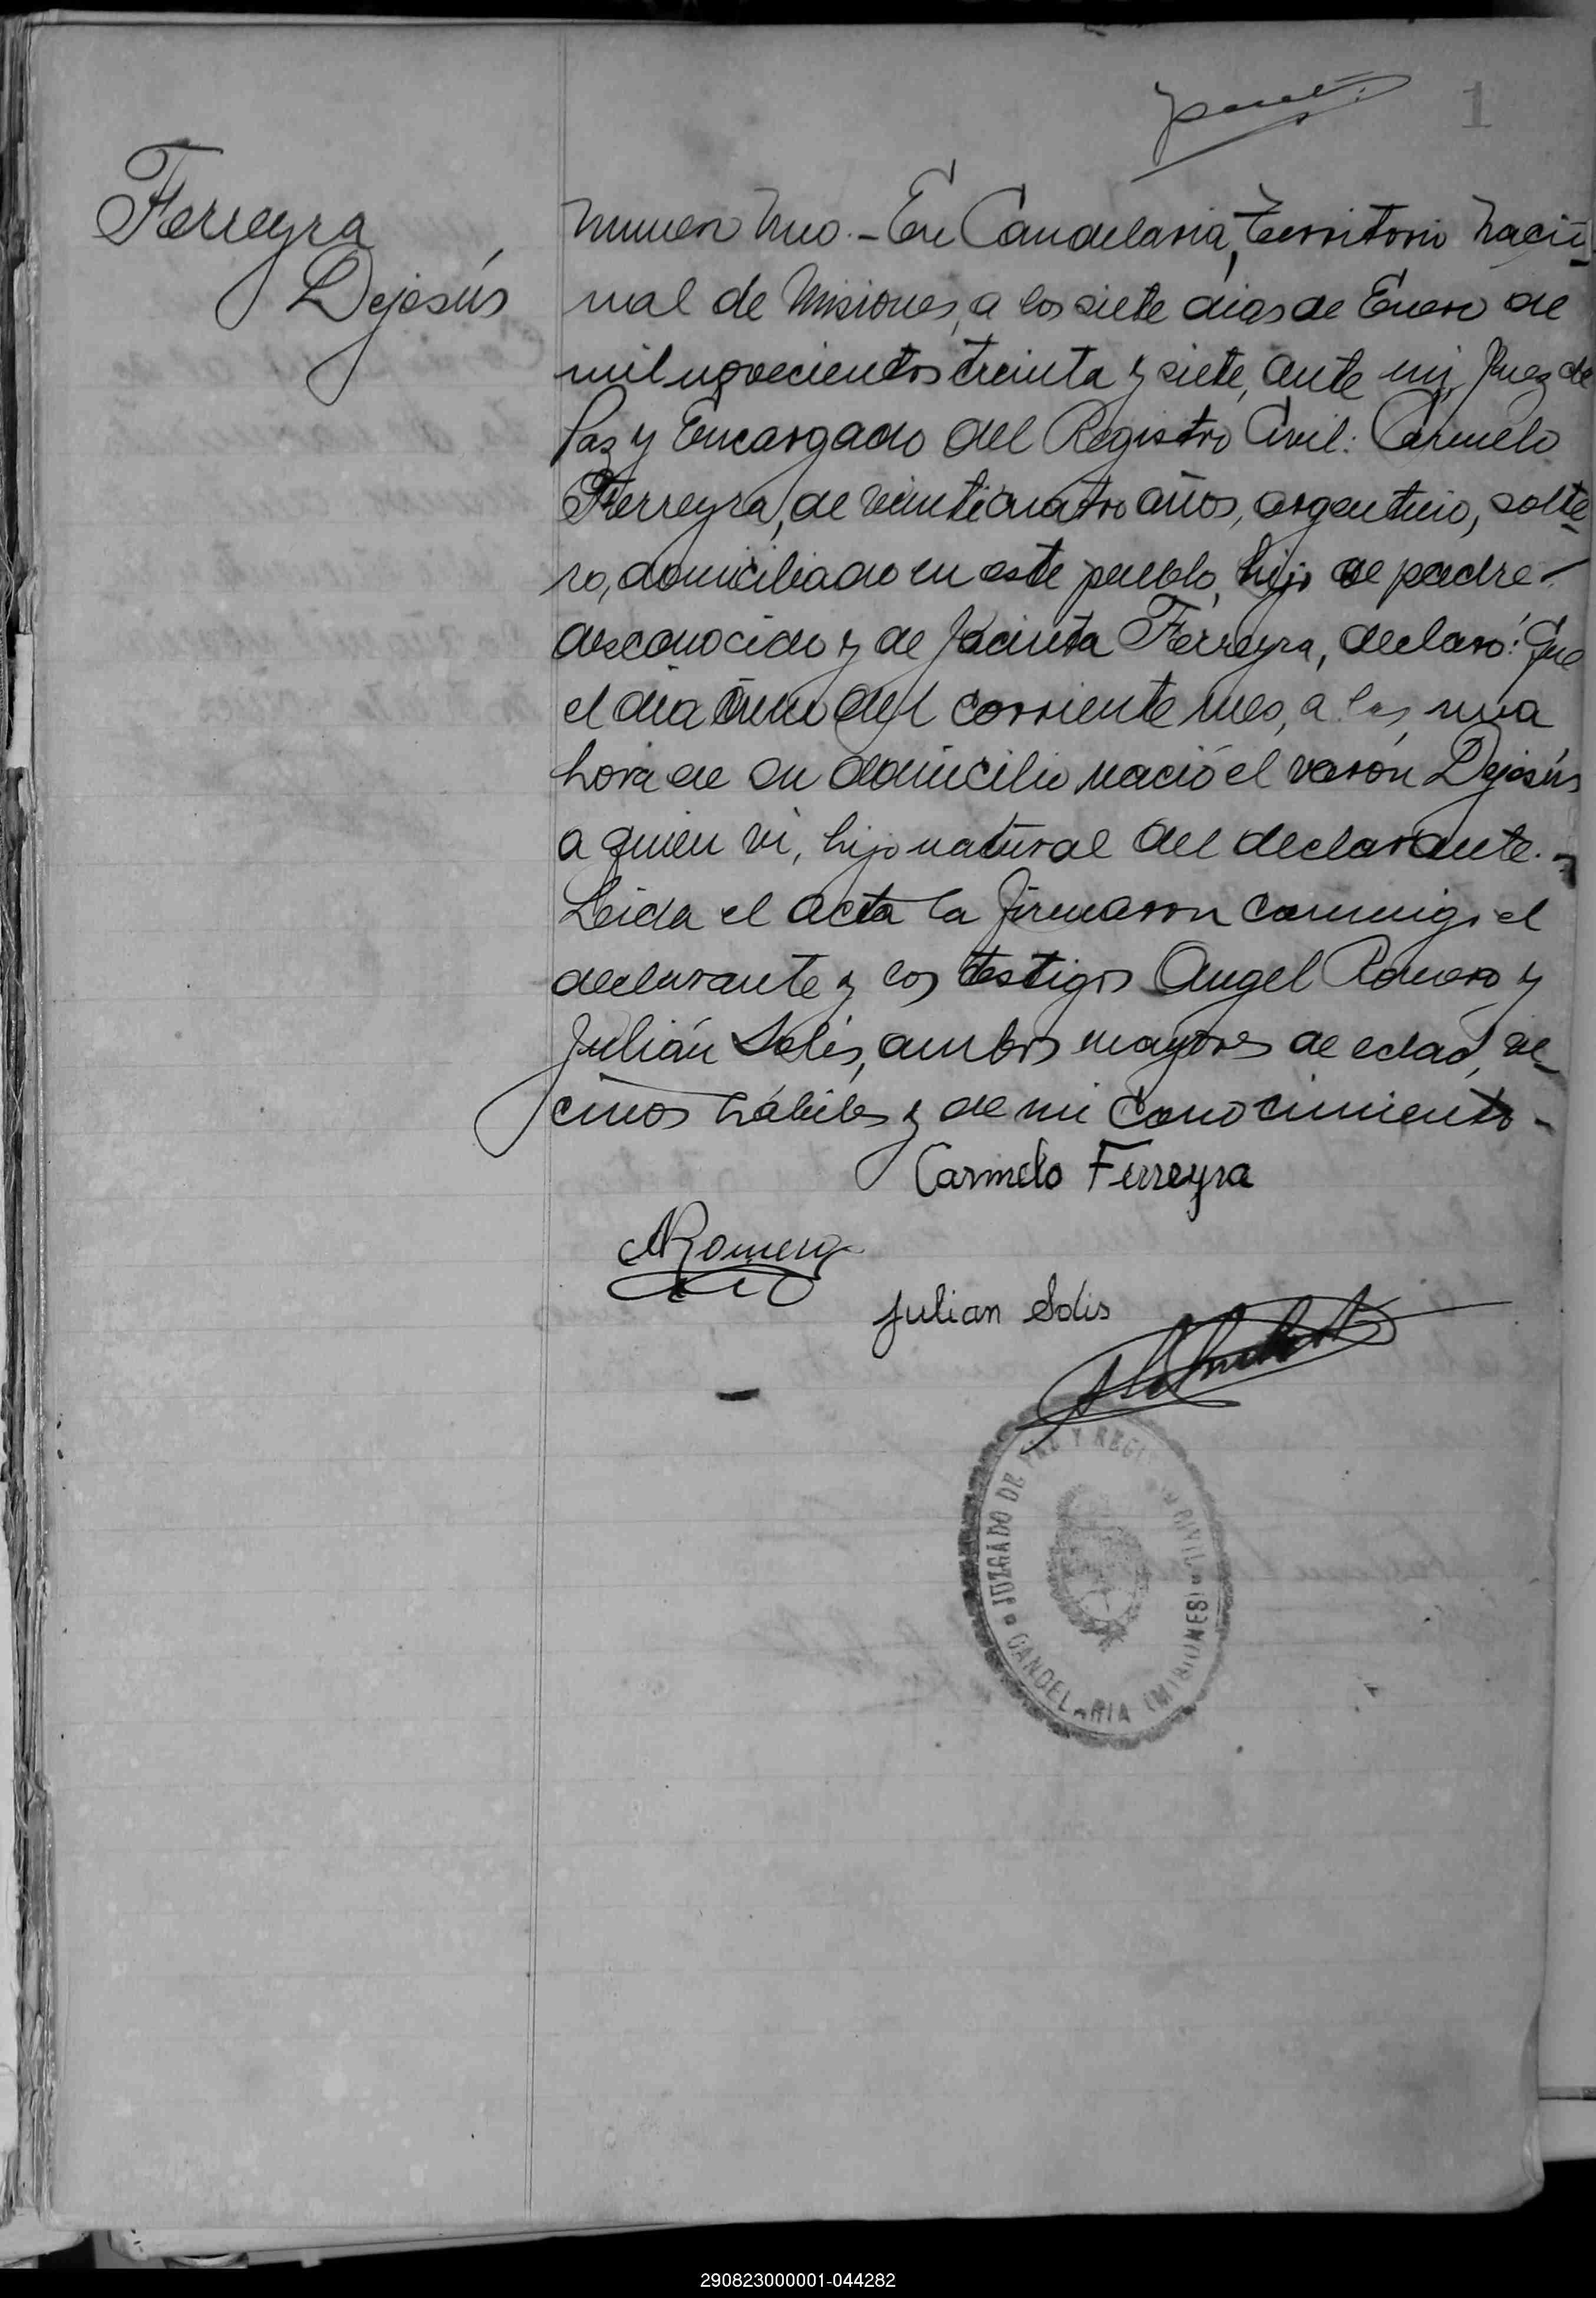 1
Ferreyra
Dejesús
Numero Uno.- En Candelaria, Territorio Nacio-
nal de Misiones, a los siete dias de Enero de
mil novecientos treinta y siete, ante mi, Juez de
Paz y Encargado del Registro Civil: Carmelo
Ferreyra, de veinticuatro años, argentino, solte-
ro, domiciliado en este pueblo, hijo de padre
desconocido y de Jacinta Ferreyra, declaró: Que
el dia del corriente mes, a las una
hora de su domicilio nació el varón Dejesús
a quien vi, hijo natural del declarante.-
Leida el acta la firmaron conmigo el
declarante y los testigos Angel Romero y
Julián Solis, ambos mayores de edad, ve-
cinos hábiles y de mi conocimiento-
Carmelo Ferreyra
ARomero
Julian Solis
JUZGADO DE PAZ Y REGISTRO CIVIL
CANDELARIA (MISIONES)
290823000001-044282